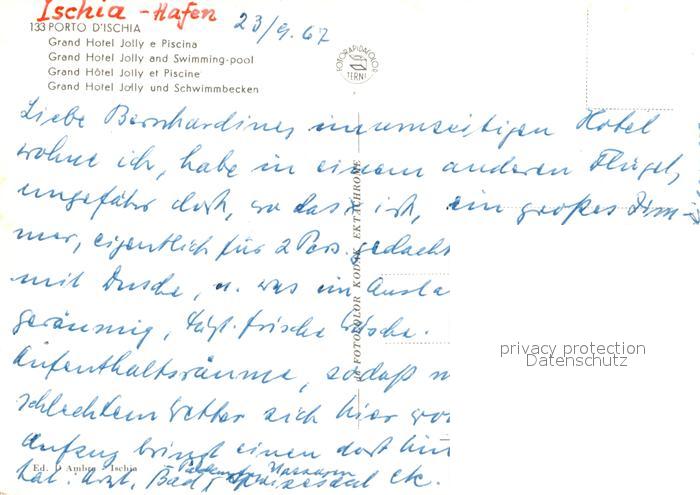 Ischia - Hafen
23/9.67
133 PORTO D'ISCHIA
Grand Hotel Jolly e Piscina
Grand Hotel Jolly and Swimming-pool
Grand Hôtel Jolly et Piscine
Grand Hotel Jolly und Schwimmbecken
FOTORAPIDACOLOR
TERNI
Liebe Bernhardiner, im umseitigen Hotel
wohne ich, habe in einem anderen Flügel,
ungefähr dort, wo das x ist, ein großes Zim-
mer, eigentlich für 2 Pers. gedacht
mit Dusche, u. was im Ausla
geräumig, tägl. frische Wäsche.
Aufenthaltsräume, sodaß
schlechtem Wetter sich hier
Aufzug bringt einen dort hin
Bad, Speisesaal etc.
Ed. D'Ambra - Ischia
FOTOCOLOR KODAK EKTACHROME
privacy protection
Datenschutz